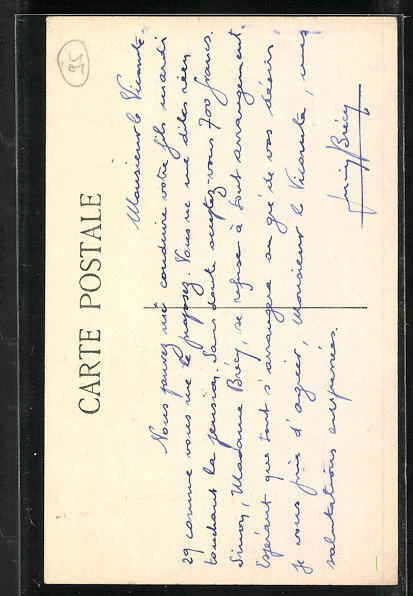 95
CARTE POSTALE
Monsieur le Vicomte
Vous pouvez me conduire votre fils mardi
29 comme vous me le proposez. Vous ne me dites rien
touchant la pension. Sans doute acceptez-vous 700 francs.
Sinon, Madame Brécy, se refuse à tout arrangement.
Espérant que tout s'arrangera au gré de vos désirs,
je vous prie d'agréer, Monsieur le Vicomte, mes
salutations empressées.
Brécy